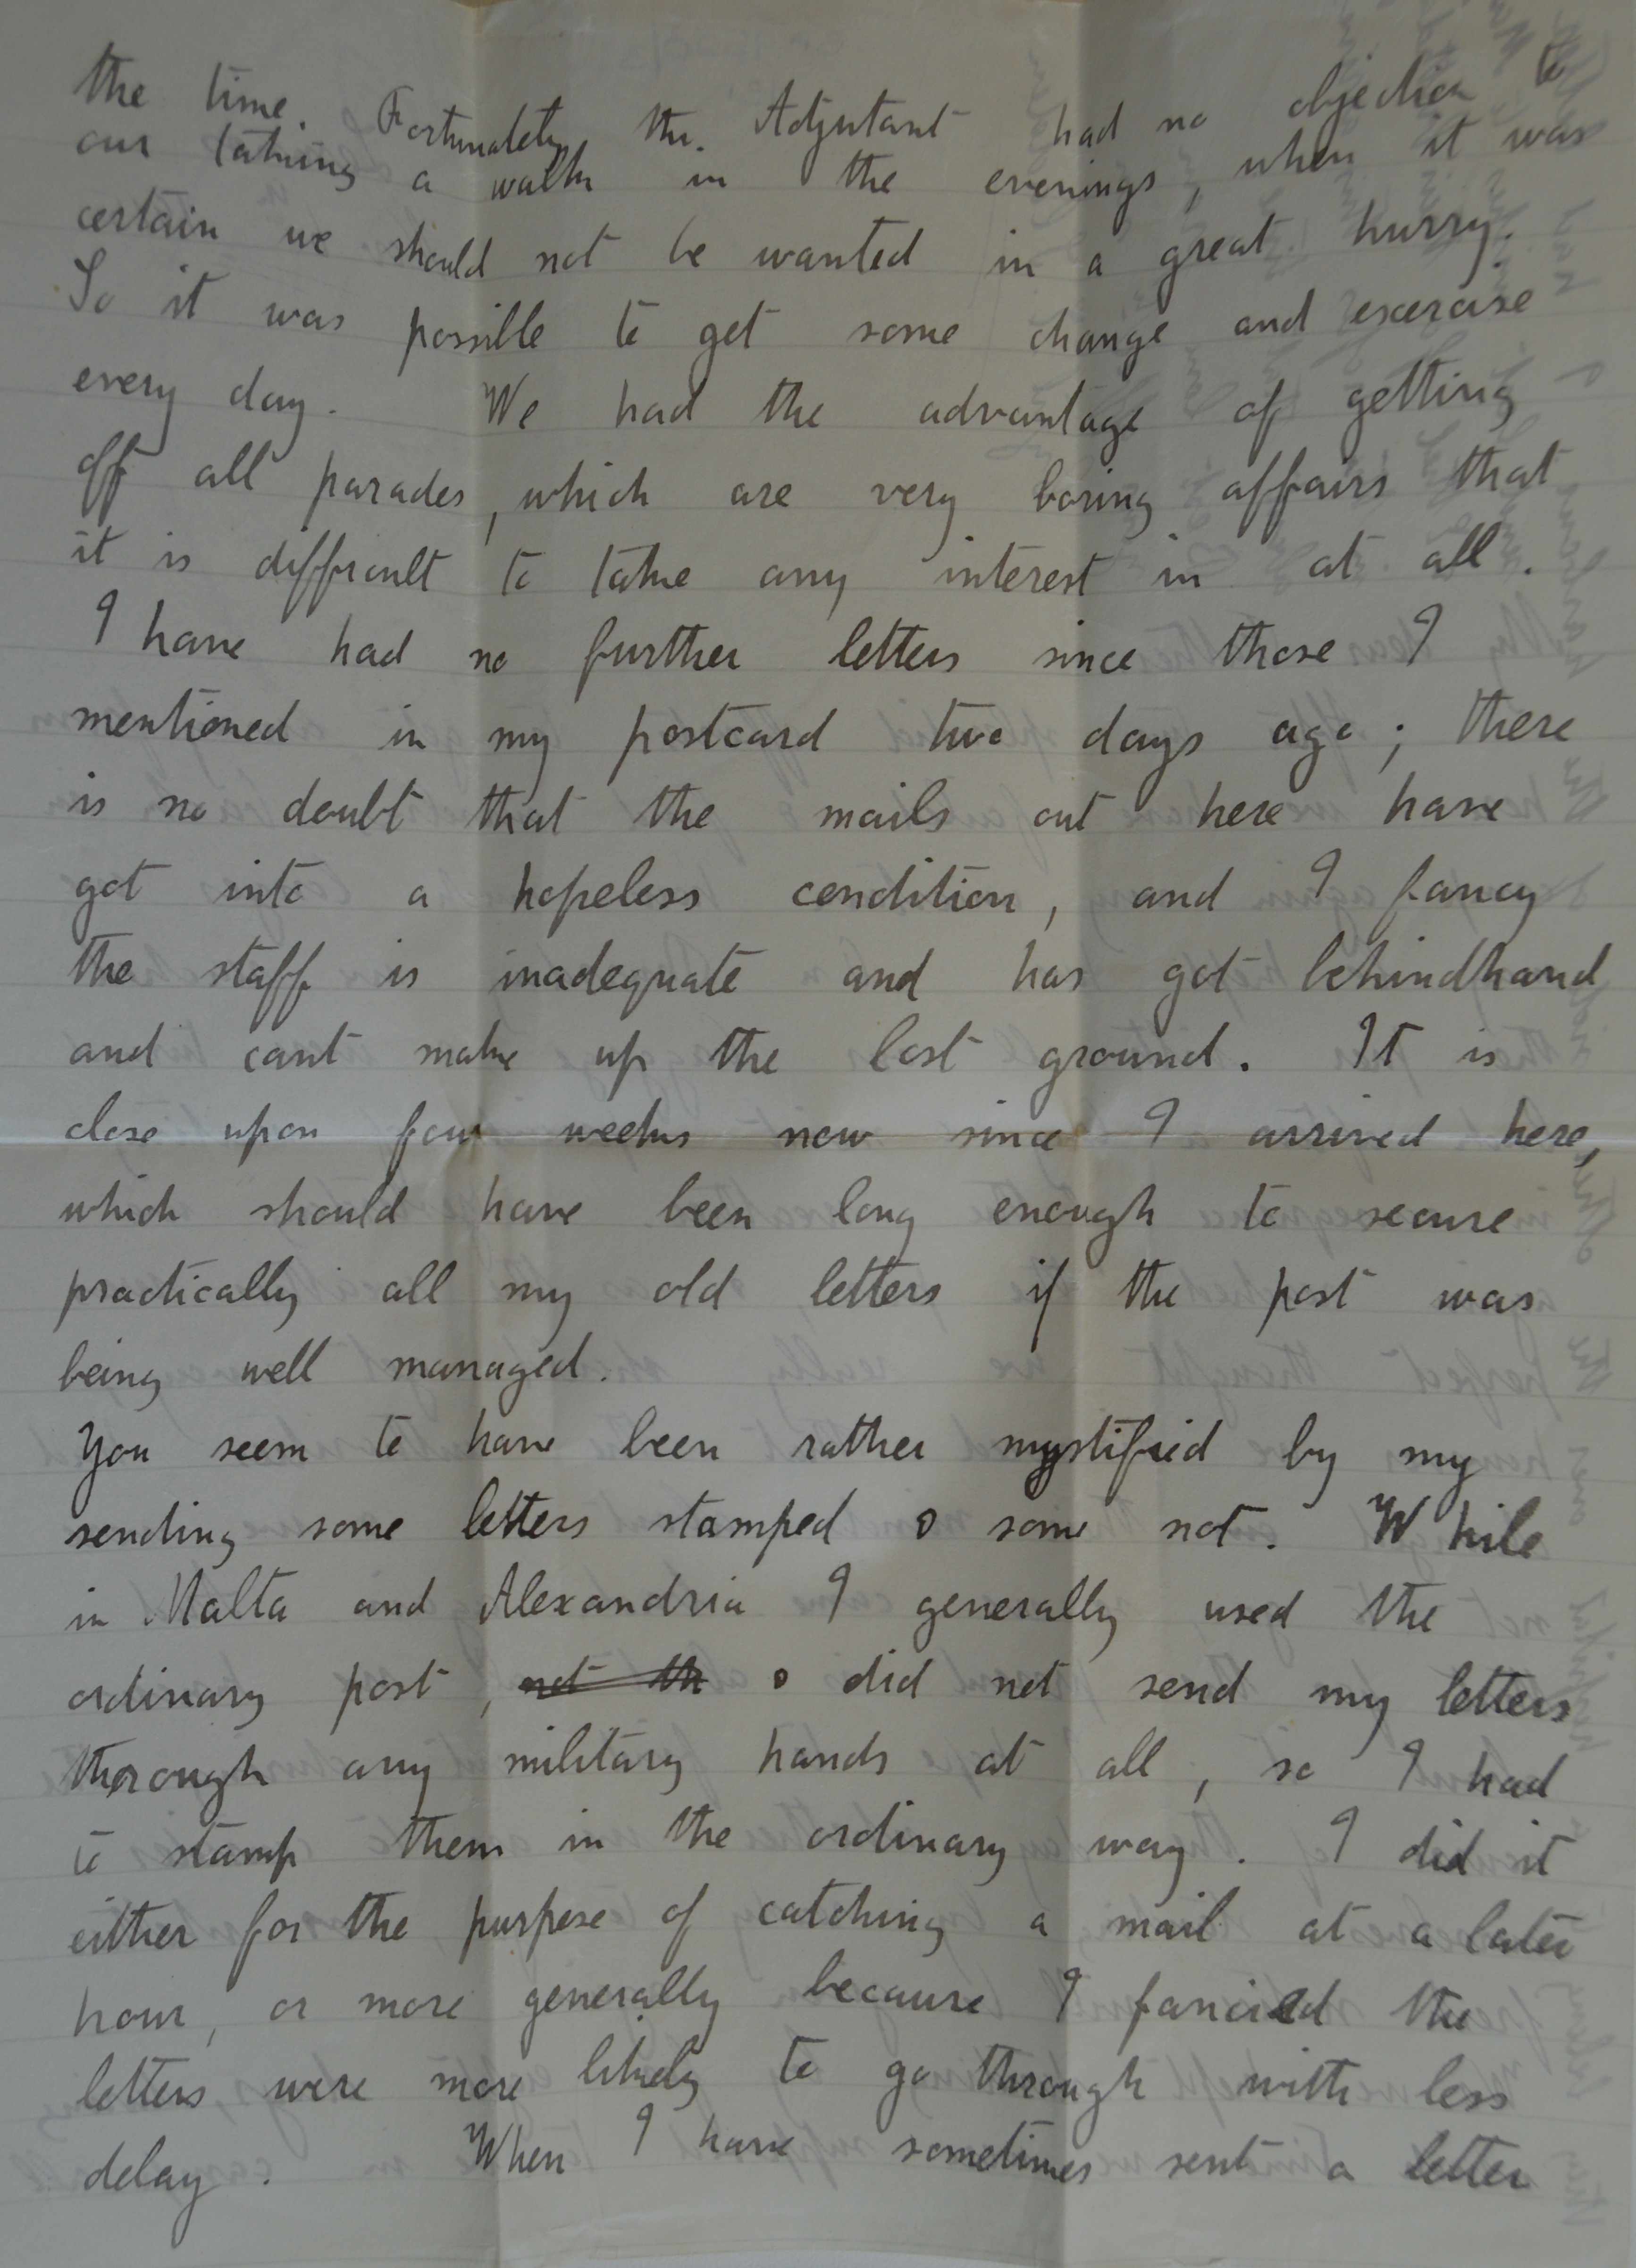 the time. Fortunately the Adjutant had no objection to
our taking a walk in the evenings, when it was
certain we should not be wanted in a great hurry.
So it was possible to get some change and exercise
every day. We had the advantage of getting
off all parades, which are very boring affairs that
it is difficult to take any interest in at all.
I have had no further letters since those I
mentioned in my postcard two days ago; there
is no doubt that the mails out here have
got into a hopeless condition, and I fancy
the staff is inadequate and has got behindhand
and cant make up the lost ground. It is
close upon four weeks now since I arrived here,
which should have been long enough to secure
practically all my old letters if the post was
being well managed.
You seem to have been rather mystified by my
sending some letters stamped & some not. While
in Malta and Alexandria I generally used the
ordinary post, not th & did not send my letters
through any military hands at all, so I had
to stamp them in the ordinary way. I did it
either for the purpose of catching a mail at a later
hour, or more generally because I fancied the
letters were more likely to go through with less
delay. When I have sometimes sent a letter